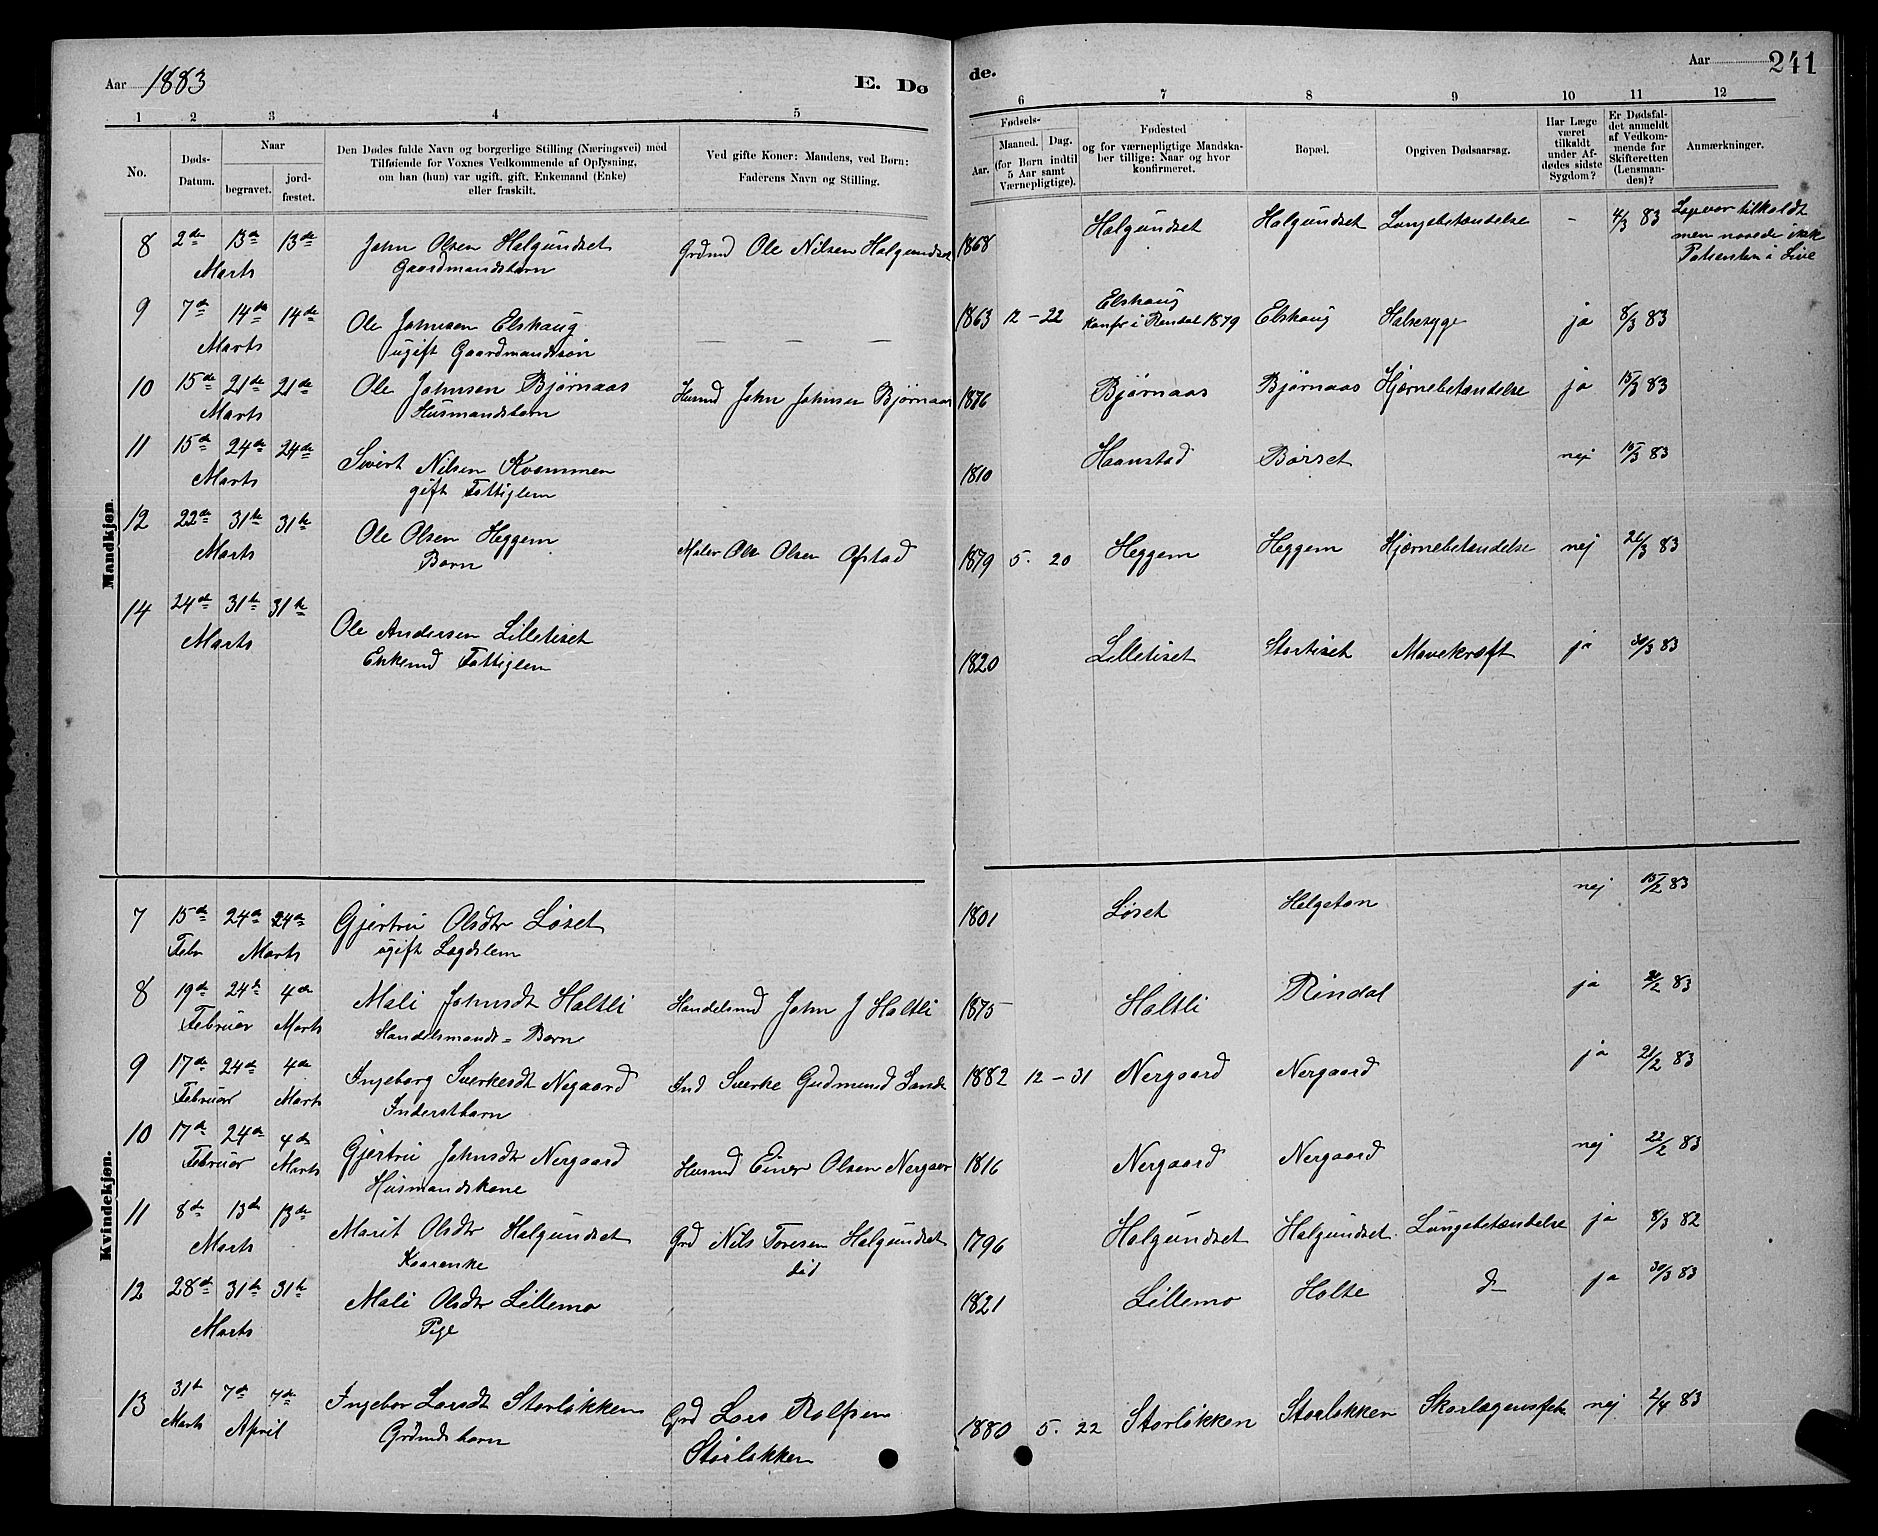 Aar 1883
E. Dø
de.
Aar
241
1 2 3 4 5
6 7 8 9 10 11 12
No.
Døds-
Datum.
Naar
begravet.
jord-
fæstet.
Den Dødes fulde Navn og borgerlige Stilling (Næringsvei) med
Tilføiende for Voxnes Vedkommende af Oplysning,
om han (hun) var ugift, gift, Enkemand (Enke)
eller fraskilt.
Ved gifte Koner: Mandens, ved Børn:
Faderens Navn og Stilling.
Fødsels-
Aar.
Maaned. Dag.
(for Børn indtil
5 Aar samt
Værnepligtige).
Fødested
og for værnepligtige Mandska-
ber tillige: Naar og hvor
konfirmeret.
Bopæl.
Opgiven Dødsaarsag.
Har Læge
været
tilkaldt
under Af-
dødes sidste
Sygdom?
Er Dødsfal-
det anmeldt
af Vedkom-
mende for
Skifteretten
(Lensman-
den)?
Anmærkninger.
Mandkjøn.
8 2de 13de 13de John Olsen Halgundset Grdmd Ole Nilsen Halgundset 1868 Halgundset Halgundset Lungebetændelse - 4/3 83
Marts Gaardmandsbarn
Læge var tilkaldt
men naaede ikke
Patienten i Live
9 7de 14de 14de Ole Johnsen Elshaug — — — 1863 12 - 22 Elshaug Elshaug Halsesyge ja 8/3 83
Marts ugift Gaardmandssøn Konfr i Rindal 1879
10 15de 21de 21de Ole Johnsen Bjørnaas Husmd John Johnsen Bjørnaas 1876 Bjørnaas Bjørnaas Hjærnebetændelse ja 15/3 83
Marts Husmandsbarn
11 15de 24de 24de Sivert Nilsen Kvammen 1810 Haanstad Børset nej 16/3 83
Marts gift Fattiglem
12 22de 31te 31te Ole Olsen Heggem Maler Ole Olsen Ofstad 1879 5. 20 Heggem Heggem Hjærnebetændelse nej 26/3 83
Marts Barn
14 24de 31te 31te Ole Andersen Lilletiset 1820 Lilletiset Stortiset Mavekræft ja 30/3 83
Marts Enkemd Fattiglem
Kvindekjøn.
7 15de 24de 24de Gjertru Olsdtr Løset 1801 Løset Helgetun nej 15/2 83
Febr Marts ugift Lagdslem
8 19de 24de 4de Mali Johnsdt Haltli Handelsmd John J Haltli 1875 Haltli Rindal ja 21/2 83
Februar Marts Handelsmands-Barn
9 17de 24de 4de Ingeborg Sverkesdt Negaard Ind Sverke Gudmund Lande 1882 12 - 31 Nergaard Nergaard ja 21/2 83
Februar Marts Inderstbarn
10 17de 24de 4de Gjertru Johnsdtr Nergaard Husmd Einer Olsen Nergaar 1816 Nergaard Nergaard nej 22/2 83
Februar Marts Husmandskone
11 8de 13de 13de Marit Olsdtr Halgundset Grd Nils Toresen Halgundset 1796 Halgundset Halgundset Lungebetændelse ja 8/3 82
Marts Kaarenke
12 28de 31te 31te Mali Olsdtr Lillemo 1821 Lillemo Holte d— ja 30/3 83
Marts Pige
13 31te 7de 7de Ingebor Larsdt Storløkken Grd Lars Rolfsen 1880 5. 22 Storløkken Storløkken nej 2/4 83
Marts April Grdmdsbarn Storløkken